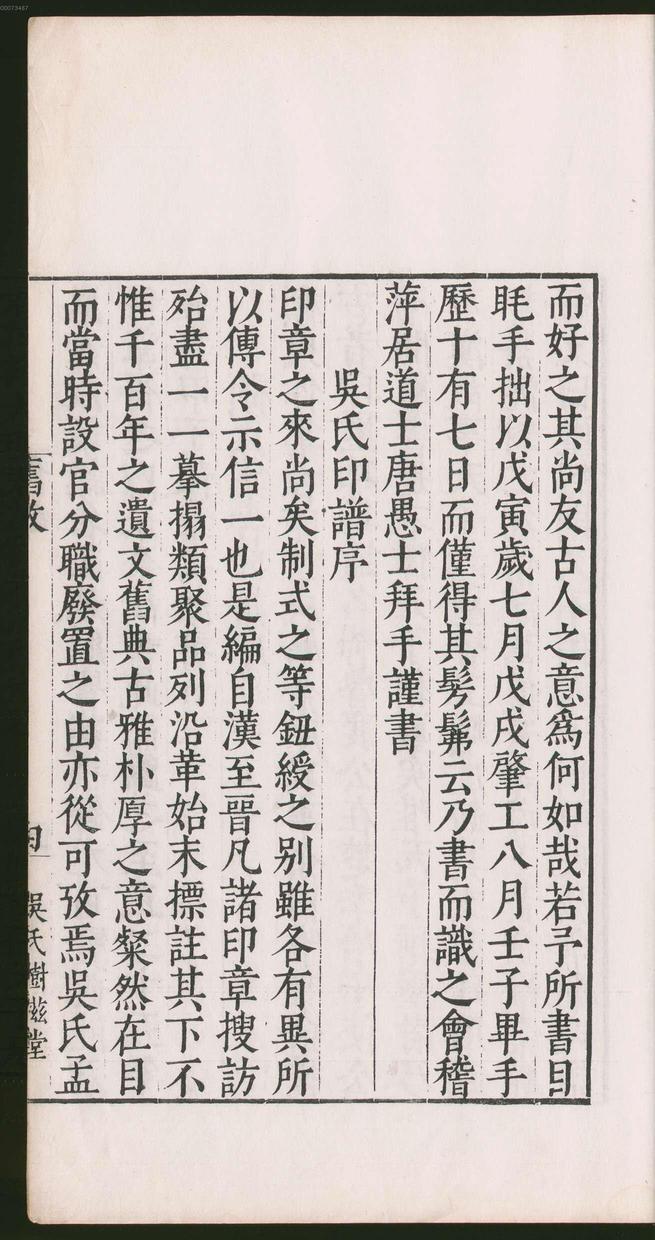 而好之其尚友古人之意爲何如哉若予所書目
眊手拙以戊寅歲七月戊戌肇工八月壬子畢手
歷十有七日而僅得其髣髴云乃書而識之會稽
萍居道士唐愚士拜手謹書
吳氏印譜序
印章之來尚矣制式之等鈕綬之別雖各有異所
以傳令示信一也是編自漢至晉凡諸印章搜訪
殆盡一一摹搨類聚品列沿革始末摽註其下不
惟千百年之遺文舊典古雅朴厚之意粲然在目
而當時設官分職廢置之由亦從可攷焉吳氏孟
吳氏樹滋堂
00073487